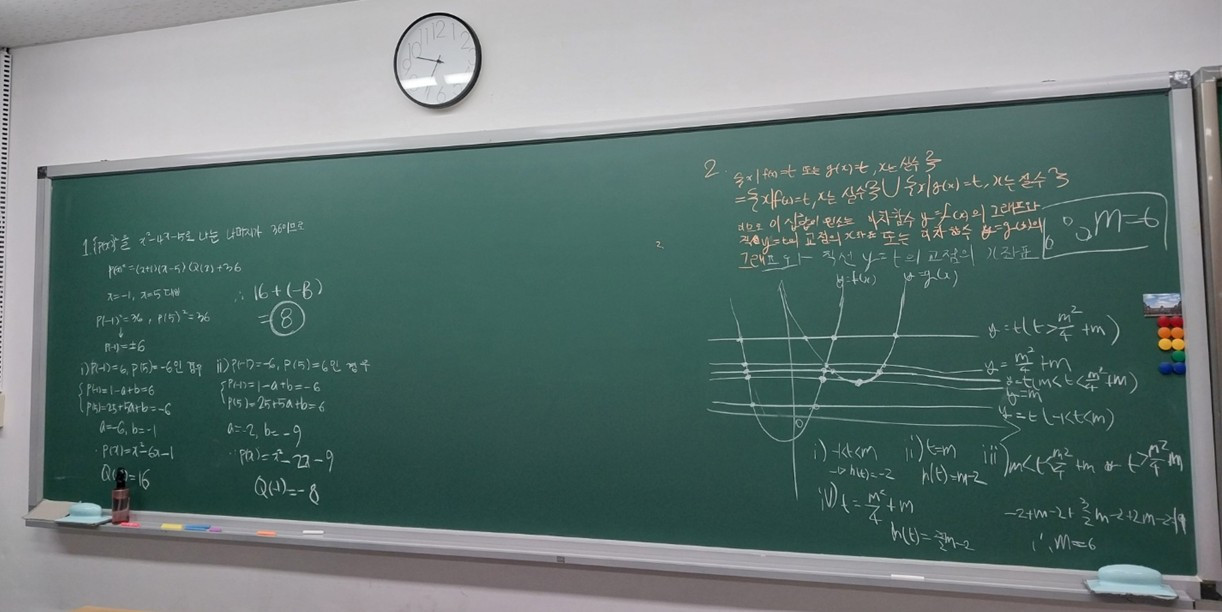 1. {P(x)}²을 x²-4x-5로 나눈 나머지가 36이므로
P(x)²=(x+1)(x-5)Q(x)+36
x=-1, x=5 대입
P(-1)²=36, P(5)²=36
P(-1)=±6
i) P(-1)=6, P(5)=-6인 경우
P(-1)=1-a+b=6
P(5)=25+5a+b=-6
a=-6, b=-1
∴P(x)=x²-6x-1
=16
∴ 16+(-8)
=8
ii) P(-1)=-6, P(5)=6인 경우
P(-1)=1-a+b=-6
P(5)=25+5a+b=6
a=-2, b=-9
∴P(x)=x²-2x-9
Q(-1)=-8
2. {x|f(x)=t 또는 g(x)=t, x는 실수}
={x|f(x)=t, x는 실수}∪{x|g(x)=t, x는 실수}
이 집합의 원소는 이차함수 y=f(x)의 그래프와
직선 y=t의 교점의 x좌표 또는 이차함수 y=g(x)의
그래프와 직선 y=t의 교점의 x좌표
∴ m=6
y=f(x) y=g(x)
y=t(t>m²/4+m)
y=m²/4+m
y=t(m<t<m²/4+m)
y=m
y=t(-1<t<m)
0
i) -1<t<m
→h(t)=-2
ii) t=m
h(t)=m-2
iii) m<t<m²/4+m or t>m²/4
iv) t=m²/4+m
h(t)=3/2m-2
-2+m-2+3/2m-2+2m-2
∴ m=6
12
1
2
10
9
6
7